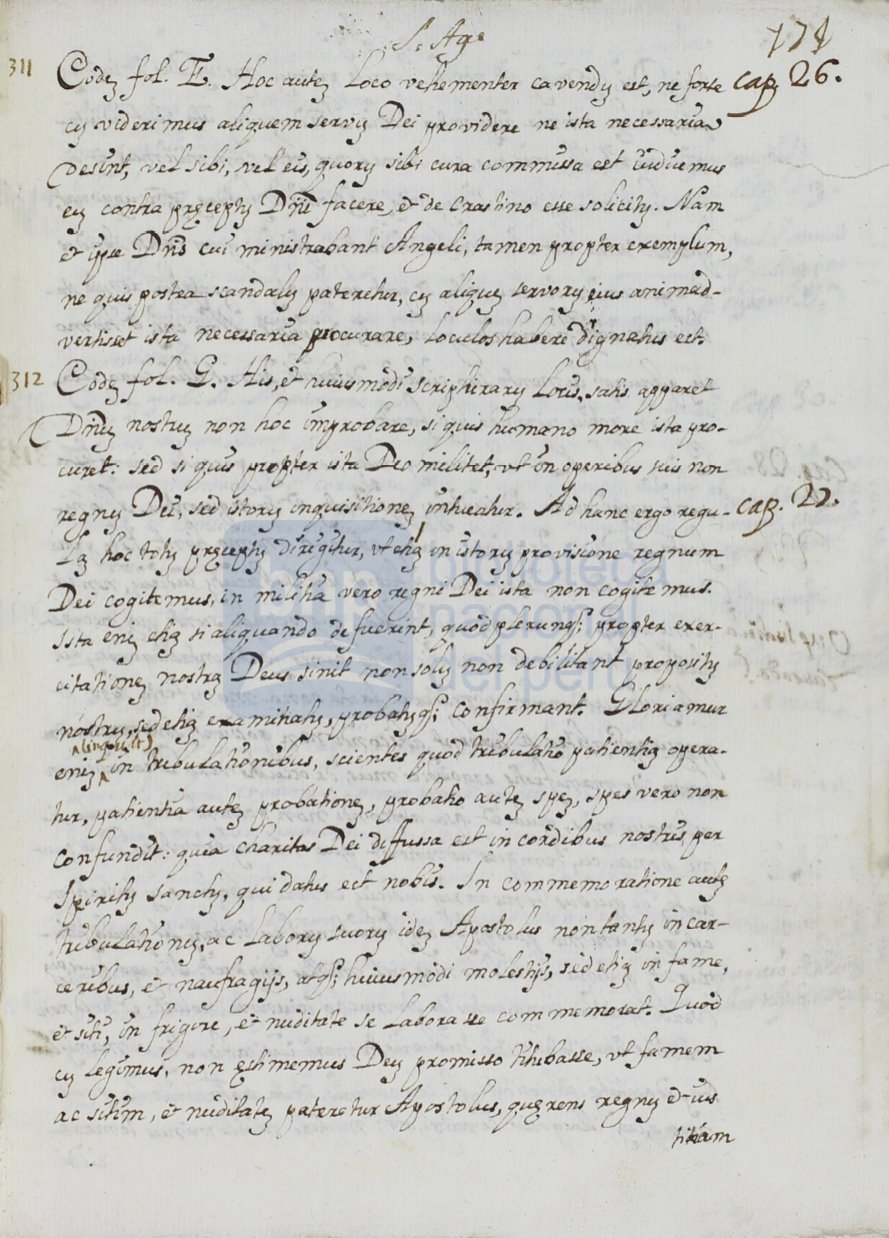 S. Ag.
171
311
Codẽ fol. E. Hoc autẽ loco vehementer cavendũ est, ne forte
cap. 26.
cũ viderimus aliquem servũ Dei providere ne ista necessaria
desint, vel sibi, vel eis, quorũ sibi cura commissa est iudicemus
eũ contra pręceptũ Dñi facere, et de crastino esse solicitũ. Nam
et ipse Dñs cui ministrabant Angeli, tamen propter exemplum,
ne quis postea scandalũ pateretur, cũ aliquẽ servorũ eius animad-
vertisset ista necessaria procurare, loculos habere dignatus est.
312
Codẽ fol. G. His, et huiusmodi scripturarũ locis, satis apparet
Dñũ nostrũ non hoc improbare, si quis humano more ista pro-
curet: sed si quis propter ista Deo militet, ut in operibus suis non
regnũ Dei, sed istorũ inquisitionẽ intueatur. Ad hanc ergo regu-
cap. 27.
lã hoc totũ pręceptũ dirigitur, ut etiã in istorũ provisione regnum
Dei cogitemus, in militia vero regni Dei ista non cogitemus.
Ista enĩ etiã si aliquando defuerint, quod plerunq; propter exer-
citationẽ nostrã Deus sinit non solũ non debilitant propositũ
nostrũ, sed etiã examinatũ, probatũq; confirmant. Gloriamur
(inquit)
enĩ in tribulationibus, scientes quod tribulatio patientiã opera-
tur, patientia autẽ probationẽ, probatio autẽ spẽ, spes vero non
confundit: quia charitas Dei diffussa est in cordibus nostris per
Spiritũ sanctũ, qui datus est nobis. In commemoratione autẽ
tribulationũ, ac laborũ suorũ idẽ Apostolus non tantũ in car-
ceribus, et naufragijs, atq; huiusmodi molestijs, sed etiã in fame,
et siti, in frigore, et nuditate se laborasse commemorat. Quod
cũ legimus, non ęstimemus Deũ promisso titubasse, ut famem
ac sitim, et nuditatẽ pateretur Apostolus, quęrens regnũ et ius
titiam
biblioteca
nacional
del perú